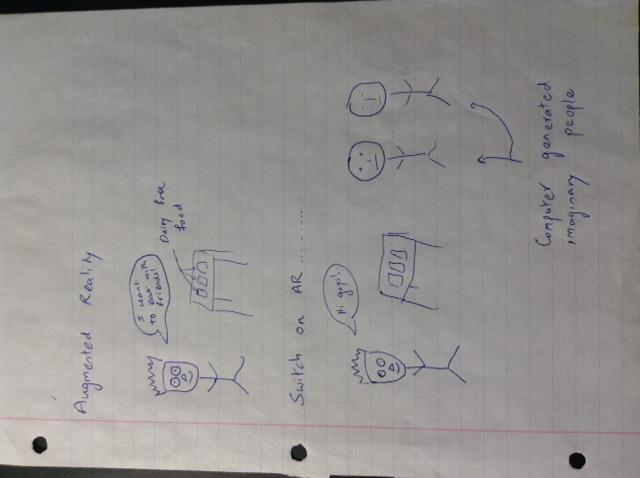 Augmented Reality
I want
to eat with
friends!
Dairy free
food
Switch on AR ........
Hi guys!
Computer generated
imaginary people